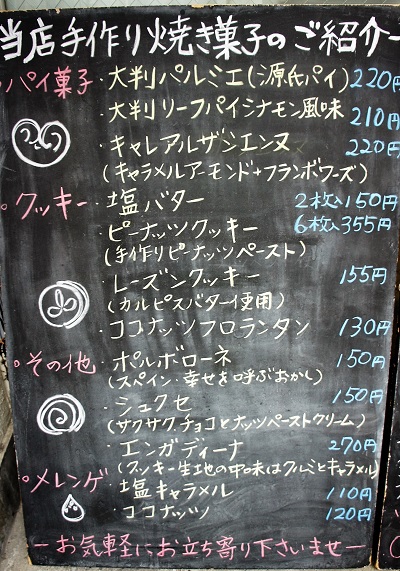 当店手作り焼き菓子のご紹介ー
○パイ菓子・大判パルミエ(源氏パイ) 220円
・大判リーフパイシナモン風味 210円
・キャレアルザシエンヌ 220円
(キャラメルアーモンド+フランボワーズ)
○クッキー・塩バター 2枚入150円
・ピーナッツクッキー 6枚入355円
(手作りピーナッツペースト)
・レーズンクッキー 155円
(カルピスバター使用)
・ココナッツフロランタン 130円
○その他・ポルボローネ 150円
(スペイン・幸せを呼ぶおかし)
・シュクセ 150円
(サクサクチョコとナッツペーストクリーム)
・エンガディーナ 270円
(クッキー生地の中味はクルミとキャラメル)
○メレンゲ・塩キャラメル 110円
・ココナッツ 120円
ーお気軽にお立ち寄り下さいませー